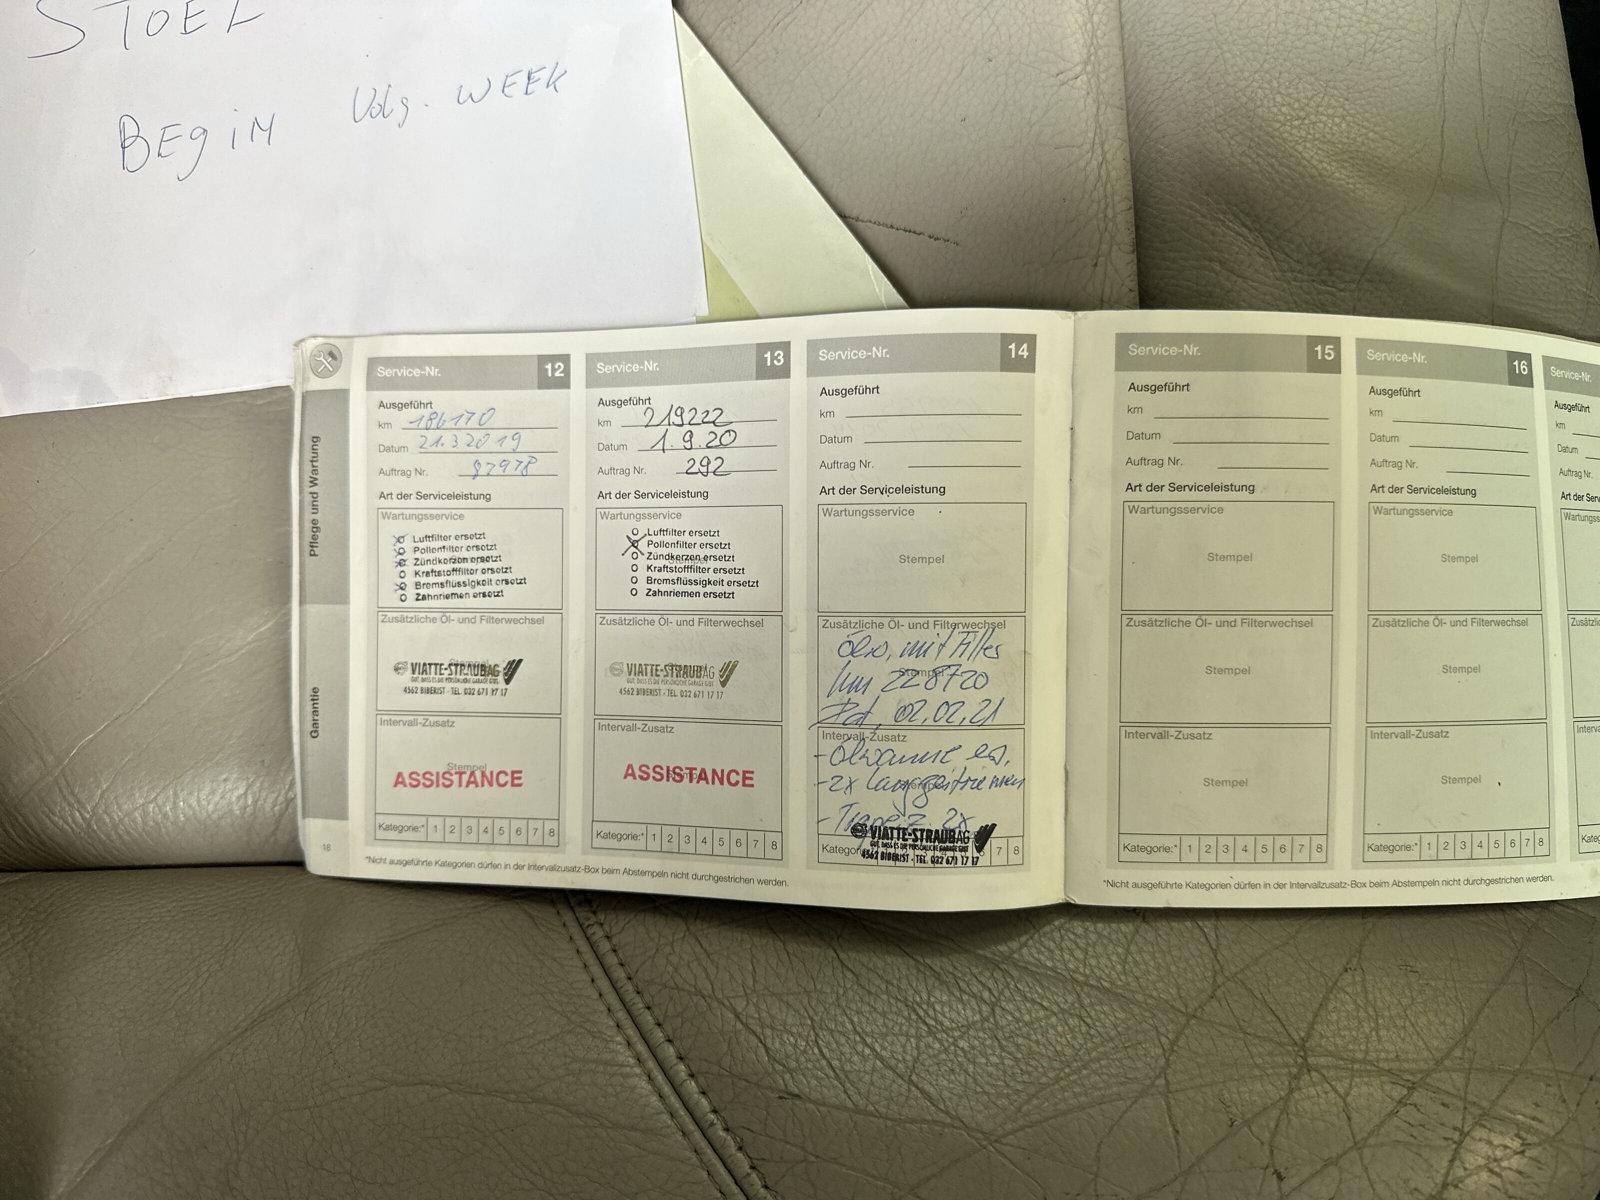 STOEL
BEGIN Volg. WEEK
Pflege und Wartung
Garantie
18
Service-Nr. 12
Ausgeführt
km 186170
Datum 21.3.2019
Auftrag Nr. 87978
Art der Serviceleistung
Wartungsservice
Luftfilter ersetzt
Pollenfilter ersetzt
Zündkerzen ersetzt
Kraftstofffilter ersetzt
Bremsflüssigkeit ersetzt
Zahnriemen ersetzt
Zusätzliche Öl- und Filterwechsel
Stempel
VIATTE-STRAUB AG
GUT, DASS ES DIE PERSÖNLICHE GARAGE GIBT.
4562 BIBERIST - TEL. 032 671 17 17
Intervall-Zusatz
Stempel
ASSISTANCE
Kategorie:* 1 2 3 4 5 6 7 8
Service-Nr. 13
Ausgeführt
km 219222
Datum 1.9.20
Auftrag Nr. 292
Art der Serviceleistung
Wartungsservice
Luftfilter ersetzt
Pollenfilter ersetzt
Zündkerzen ersetzt
Stempel
Kraftstofffilter ersetzt
Bremsflüssigkeit ersetzt
Zahnriemen ersetzt
Zusätzliche Öl- und Filterwechsel
Stempel
VIATTE-STRAUB AG
GUT, DASS ES DIE PERSÖNLICHE GARAGE GIBT.
4562 BIBERIST - TEL. 032 671 17 17
Intervall-Zusatz
Stempel
ASSISTANCE
Kategorie:* 1 2 3 4 5 6 7 8
*Nicht ausgeführte Kategorien dürfen in der Intervallzusatz-Box beim Abstempeln nicht durchgestrichen werden.
Service-Nr. 14
Ausgeführt
km
Datum
Auftrag Nr.
Art der Serviceleistung
Wartungsservice
Stempel
Zusätzliche Öl- und Filterwechsel
Ölw. mit Filter
Stempel
km 228720
Dat. 02.02.21
Intervall-Zusatz
- Ölwanne es.
- 2x
Stempel
- 2x
VIATTE-STRAUB AG
GUT, DASS ES DIE PERSÖNLICHE GARAGE GIBT.
4562 BIBERIST - TEL. 032 671 17 17
Kategor 7 8
Service-Nr. 15
Ausgeführt
km
Datum
Auftrag Nr.
Art der Serviceleistung
Wartungsservice
Stempel
Zusätzliche Öl- und Filterwechsel
Stempel
Intervall-Zusatz
Stempel
Kategorie:* 1 2 3 4 5 6 7 8
Service-Nr. 16
Ausgeführt
km
Datum
Auftrag Nr.
Art der Serviceleistung
Wartungsservice
Stempel
Zusätzliche Öl- und Filterwechsel
Stempel
Intervall-Zusatz
Stempel
Kategorie:* 1 2 3 4 5 6 7 8
*Nicht ausgeführte Kategorien dürfen in der Intervallzusatz-Box beim Abstempeln nicht durchgestrichen werden.
Service-Nr.
Ausgeführt
km
Datum
Auftrag Nr.
Art der Serv
Wartungss
Zusätzlic
Interva
Kateg